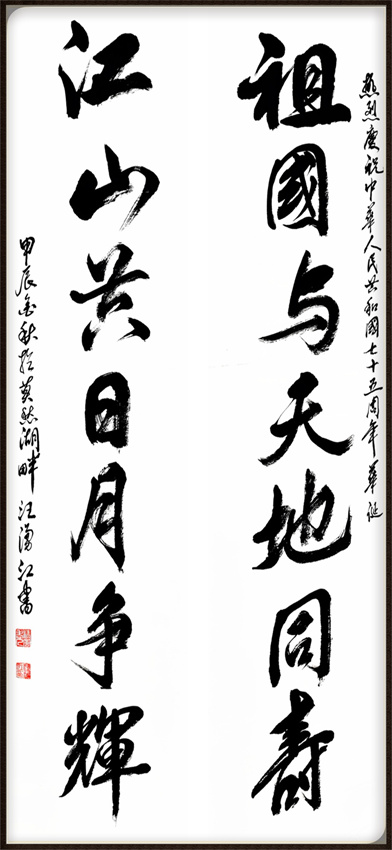 熱烈慶祝中華人民共和國七十五周年華诞
祖國与天地同壽
江山共日月争輝
甲辰金秋於莫愁湖畔 汪濤江書